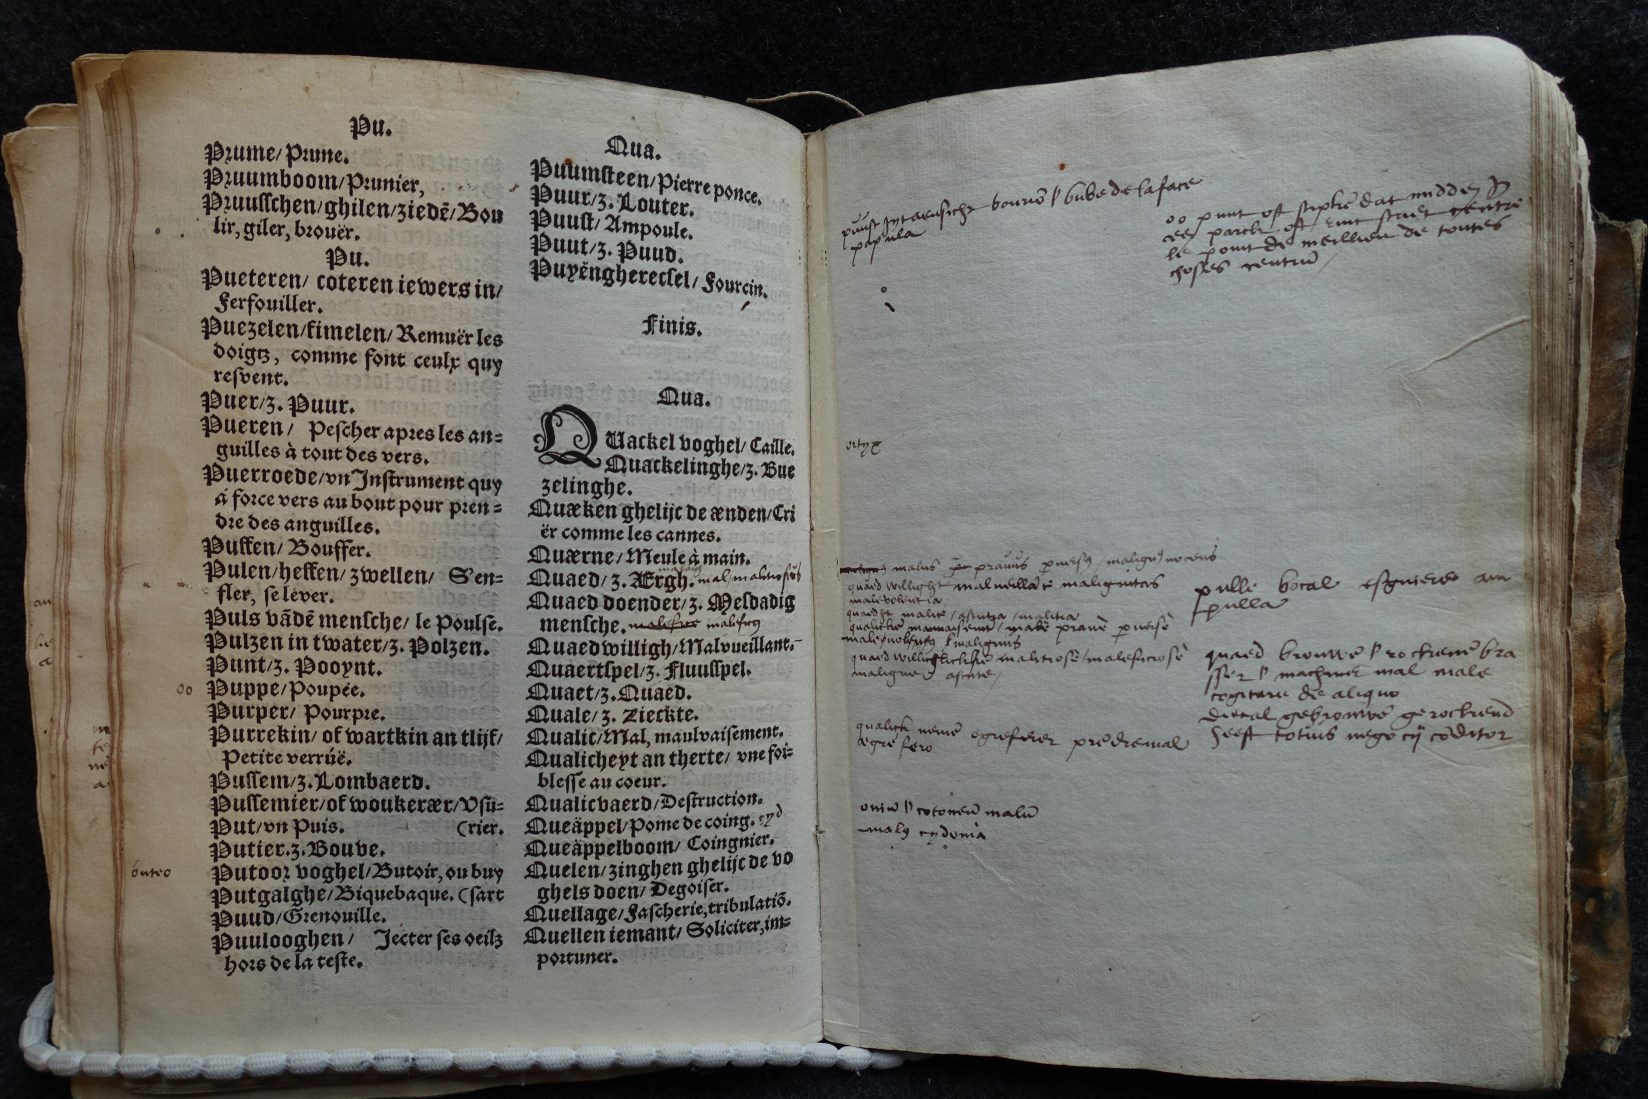 Pu.
Prume/ Prune.
Pruumboom/ Prunier,
Pruusschen/ ghilen/ ziedē/ Bou
lir, giler, brouër.
Pu.
Pueteren/ coteren iewers in/
Ferfouiller.
Puezelen/ fimelen/ Remuër les
doigtz, comme font ceulx quy
resvent.
Puer/ z. Puur.
Pueren/ Pescher apres les an=
guilles à tout des vers.
Puerroede/ vn Instrument quy
a force vers au bout pour pren=
dre des anguilles.
Puffen/ Bouffer.
Pulen/ heffen/ zwellen/ S'en-
fler, se lever.
Puls vādē mensche/ le Poulse.
Pulzen in twater/ z. Polzen.
Punt/ z. Pooynt.
oo Puppe/ Poupée.
Purper/ Pourpre.
Purrekin/ of wartkin an tlijf/
Petite verruë.
Pussem/ z. Lombaerd.
Pussemier/ of woukerær/ Vsu=
Put/ vn Puis. (rier.
Putier. z. Bouve.
buteo Putoor voghel/ Butoir, ou buy
Putgalghe/ Biquebaque. (sart
Puud/ Grenouille.
Puulooghen/ Jecter ses oeilz
hors de la teste.
Qua.
Puumsteen/ Pierre ponce.
Puur/ z. Louter.
Puust/ Ampoule.
Puut/ z. Puud.
Puyēngherecsel/ Fourcin.
Finis.
Qua.
QUackel voghel/ Caille.
Quackelinghe/ z. Bue
zelinghe.
Quækēn ghelijc de ænden/ Cri
ër comme les cannes.
Quærne/ Meule à main.
Quaed/ z. Ærgh. mal/ malitiosus
Quaed doender/ z. Mesdadig
mensche. maleficus
Quaed willigh/ Malvueillant.
Quaertspel/ z. Fluusspel.
Quaet/ z. Quaed.
Quale/ z. Zieckte.
Qualic/ Mal, maulvaisement.
Qualicheyt an therte/ vne foi-
blesse au coeur.
Qualicvaerd/ Destruction.
Queäppel/ Pome de coing. cyd
Queäppelboom/ Coingnier.
Quelen/ zinghen ghelijc de vo
ghels doen/ Degoiser.
Quellage/ Fascherie, tribulatiō.
Quellen iemant/ Soliciter, im-
portuner.
puust bube de la face
papula
oo punt oft dat midden
le point de meillieu de toutes
choses centrū
ortyx
malus pravus
quaed willicht malveillāce malignitas
malevolentia
quaed willichlicke malitiosē/ maleficiosē
maligne astute/
qualick neme predremal
egre fero
cotoneū malū
malū cydonia
pulle bocal am
pulla
quaed brouwē
machiner mal male
cogitare de aliquo
dietal gebrouwē gerockend
heeft totius negocij cōditor